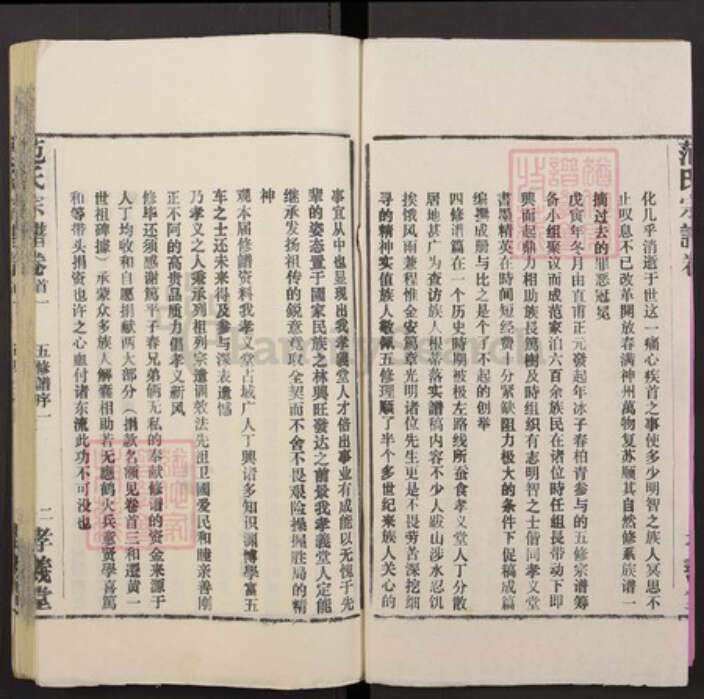 化几乎消逝于世这一痛心疾首之事使多少明智之族人冥思不
止叹息不已改革開放春满神州萬物复苏顺其自然修系族譜一
摘过去的罪恶冠冕
戊寅年冬月由直甫正元發起年冰子春柏青参与的五修宗譜筹
备小组聚议而成范家泊六百余族民在诸位時任组長带动下即
興而起鼎力相助族長篤樹及時组织有志明智之士偕同孝义堂
書墨精英在時间短经费十分紧缺阻力极大的条件下促稿成篇
编撰成册与比之是个了不起的创举
四修谱篇在一个历史時期被极左路线所蚕食孝义堂人丁分散
居地甚广为查访族人根蒂落实譜稿内容不少人跋山涉水忍饥
挨饿风雨兼程惟金安篤章光明诸位先生更是不畏劳苦深挖细
寻的精神实值族人敬佩五修理顺了半个多世纪来族人关心的
事宜从中也显现出我孝義堂人才倍出事业有成能以无愧于先
辈的姿态置于國家民族之林興旺發达之前景我孝義堂人定能
继承发扬祖传的锐意竟取全契而不舍不畏艰险操握胜局的精
神
观本届修譜资料我孝义堂占城广人丁興诸多知识渊博學富五
车之士还未来得及参与深表遗憾
乃孝义之人秉承列祖列宗遗训效法先祖卫國爱民和睦亲善刚
正不阿的高贵品质力倡孝义新风
修毕还须感谢篤平子春兄弟倆无私的奉献修谱的资金来源于
人丁均收和自愿捐献两大部分（捐款名额见卷首三和遷黄一
世祖碑據）承蒙众多族人解囊相助若无應鹤火兵重贤學喜篤
和等带头捐资也许之心血付诸东流此功不可没也
范氏宗譜卷首一
五修譜序一
二
孝義堂
范氏宗譜卷